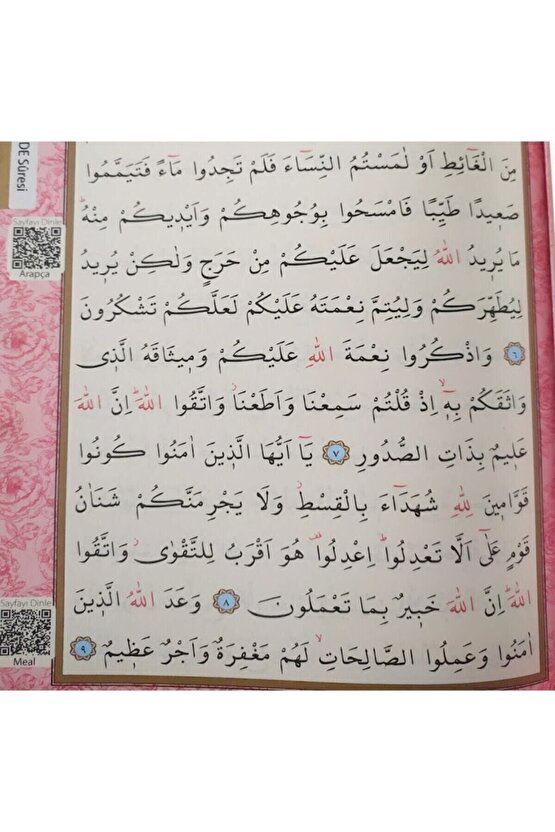 DE Sûresi
Sayfayı Dinle
Arapça
Sayfayı Dinle
Meal
مِنَ الْغَٓائِطِ اَوْ لٰمَسْتُمُ النِّسَٓاءَ فَلَمْ تَجِدُوا مَٓاءً فَتَيَمَّمُوا
صَع۪يدًا طَيِّبًا فَامْسَحُوا بِوُجُوهِكُمْ وَاَيْد۪يكُمْ مِنْهُۜ
مَا يُر۪يدُ اللّٰهُ لِيَجْعَلَ عَلَيْكُمْ مِنْ حَرَجٍ وَلٰكِنْ يُر۪يدُ
لِيُطَهِّرَكُمْ وَلِيُتِمَّ نِعْمَتَهُ عَلَيْكُمْ لَعَلَّكُمْ تَشْكُرُونَ
﴿٦﴾ وَاذْكُرُوا نِعْمَةَ اللّٰهِ عَلَيْكُمْ وَم۪يثَاقَهُ الَّذ۪ي
وَاثَقَكُمْ بِه۪ٓۙ اِذْ قُلْتُمْ سَمِعْنَا وَاَطَعْنَاۘ وَاتَّقُوا اللّٰهَۜ اِنَّ اللّٰهَ
عَل۪يمٌ بِذَاتِ الصُّدُورِ ﴿٧﴾ يَٓا اَيُّهَا الَّذ۪ينَ اٰمَنُوا كُونُوا
قَوَّام۪ينَ لِلّٰهِ شُهَدَٓاءَ بِالْقِسْطِۘ وَلَا يَجْرِمَنَّكُمْ شَنَاٰنُ
قَوْمٍ عَلٰٓى اَلَّا تَعْدِلُواۜ اِعْدِلُوا۠ هُوَ اَقْرَبُ لِلتَّقْوٰىۘ وَاتَّقُوا
اللّٰهَۜ اِنَّ اللّٰهَ خَب۪يرٌ بِمَا تَعْمَلُونَ ﴿٨﴾ وَعَدَ اللّٰهُ الَّذ۪ينَ
اٰمَنُوا وَعَمِلُوا الصَّالِحَاتِۙ لَهُمْ مَغْفِرَةٌ وَاَجْرٌ عَظ۪يمٌ ﴿٩﴾